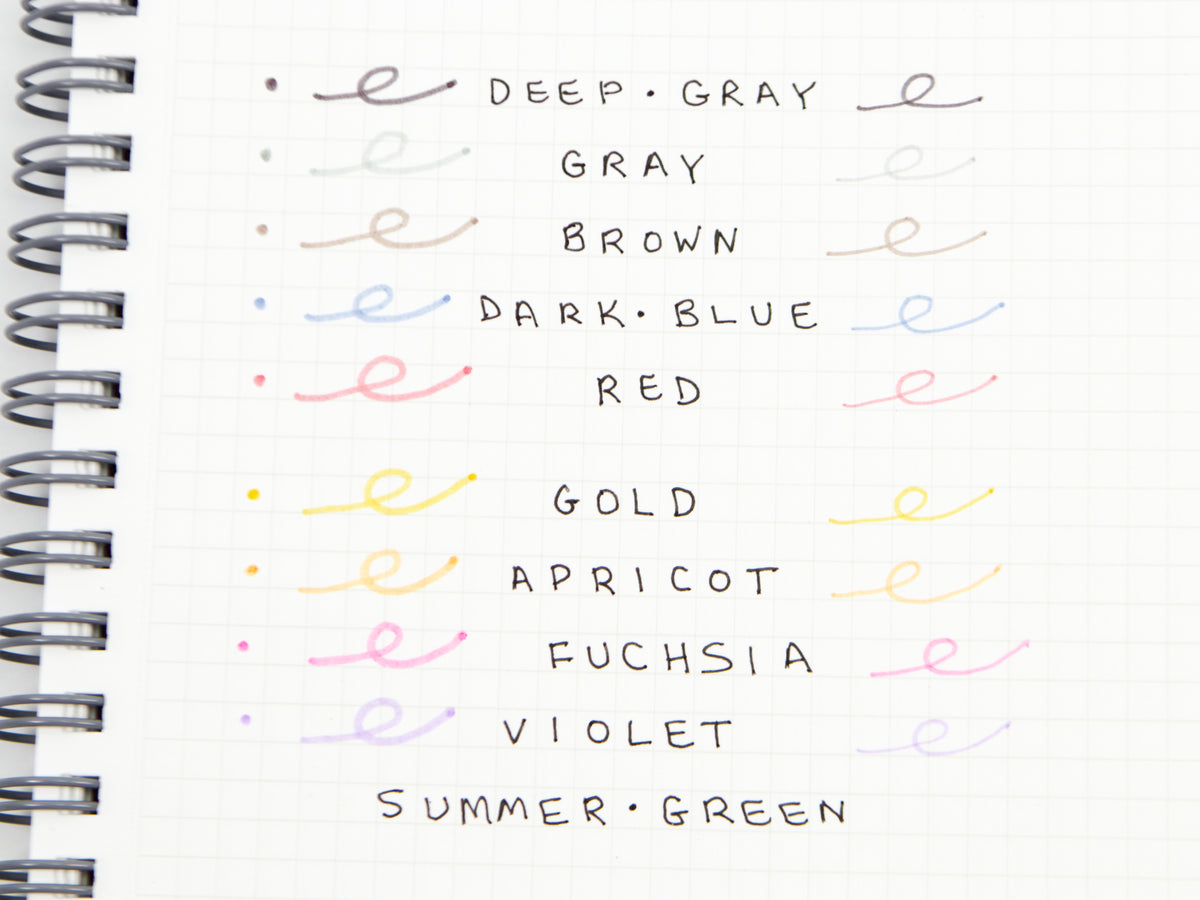 DEEP · GRAY
GRAY
BROWN
DARK · BLUE
RED
GOLD
APRICOT
FUCHSIA
VIOLET
SUMMER · GREEN